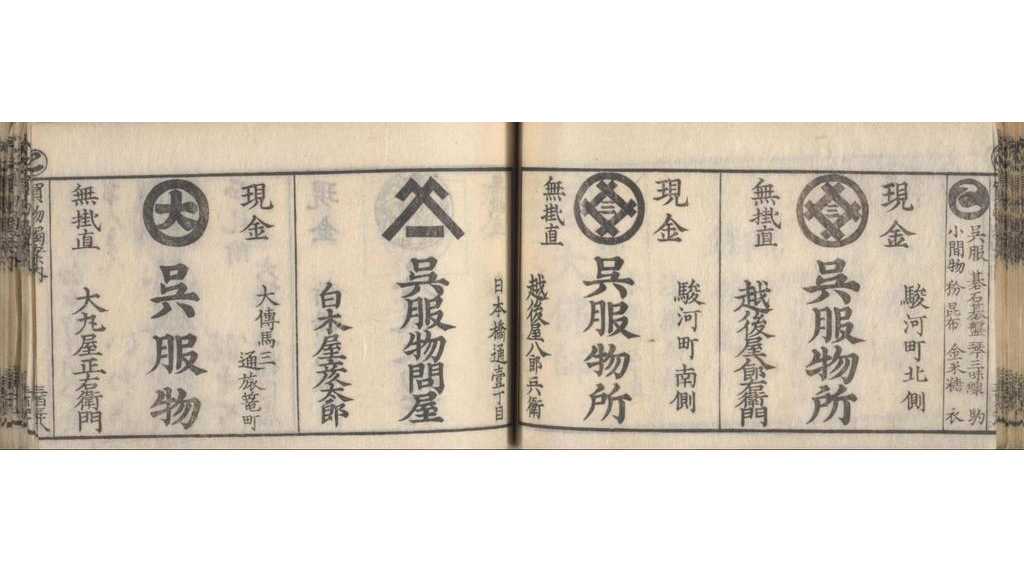 呉服 碁石碁盤 琴三味線
小間物 粉 昆布 金米糖 衣
駿河町北側
現金
呉服物所
無掛直
越後屋八郎右衛門
駿河町南側
現金
呉服物所
無掛直
越後屋八郎兵衛
日本橋通壹丁目
呉服物問屋
白木屋彦太郎
大傳馬三
通旅篭町
現金
大
呉服物
無掛直
大丸屋正右衛門